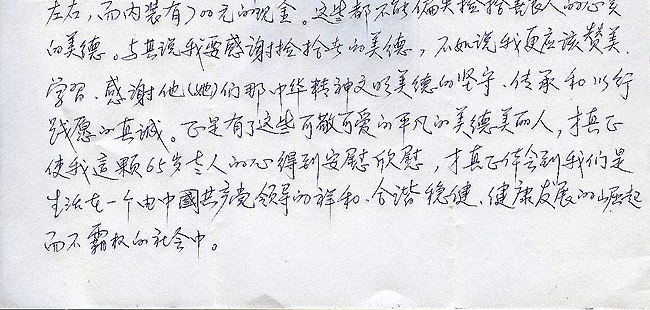 左右，而内装有700元的现金。这些都不能偏失捡拾善良人的心灵
的美德。与其说我要感谢捡拾者的美德，不如说我更应该赞美、
学習、感谢他(她)们那中华精神文明美德的坚守、传承和以行
践愿的真诚。正是有了这些可敬可爱的平凡的美德美的人，才真正
使我這颗65岁老人的心得到安慰欣慰，才真正体会到我们是
生活在一个由中國共産党领导的祥和、合谐、稳健、健康发展的崛起
而不霸权的社会中。